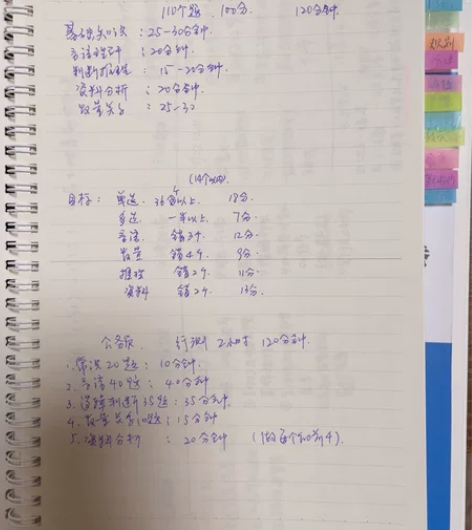 110个题 100分 120分钟
基础知识 : 25-30分钟.
言语理解 : 20分钟.
判断推理 : 15-20分钟.
资料分析 : 20分钟.
数量关系 : 25-30
(14个以内)
目标: 单选. 36个以上. 18分.
多选 一半以上. 7分.
言语. 错3个. 12分.
数量 错4个. 9分.
推理 错2个. 11分.
资料 错2个. 13分.
公务员. 行测 120分钟.
1.常识20题: 10分钟.
2.言语40题: 40分钟
3.逻辑判断35题: 35分钟.
4.数量关系10题: 15分钟
5.资料分析 : 20分钟 (做每个的前4).